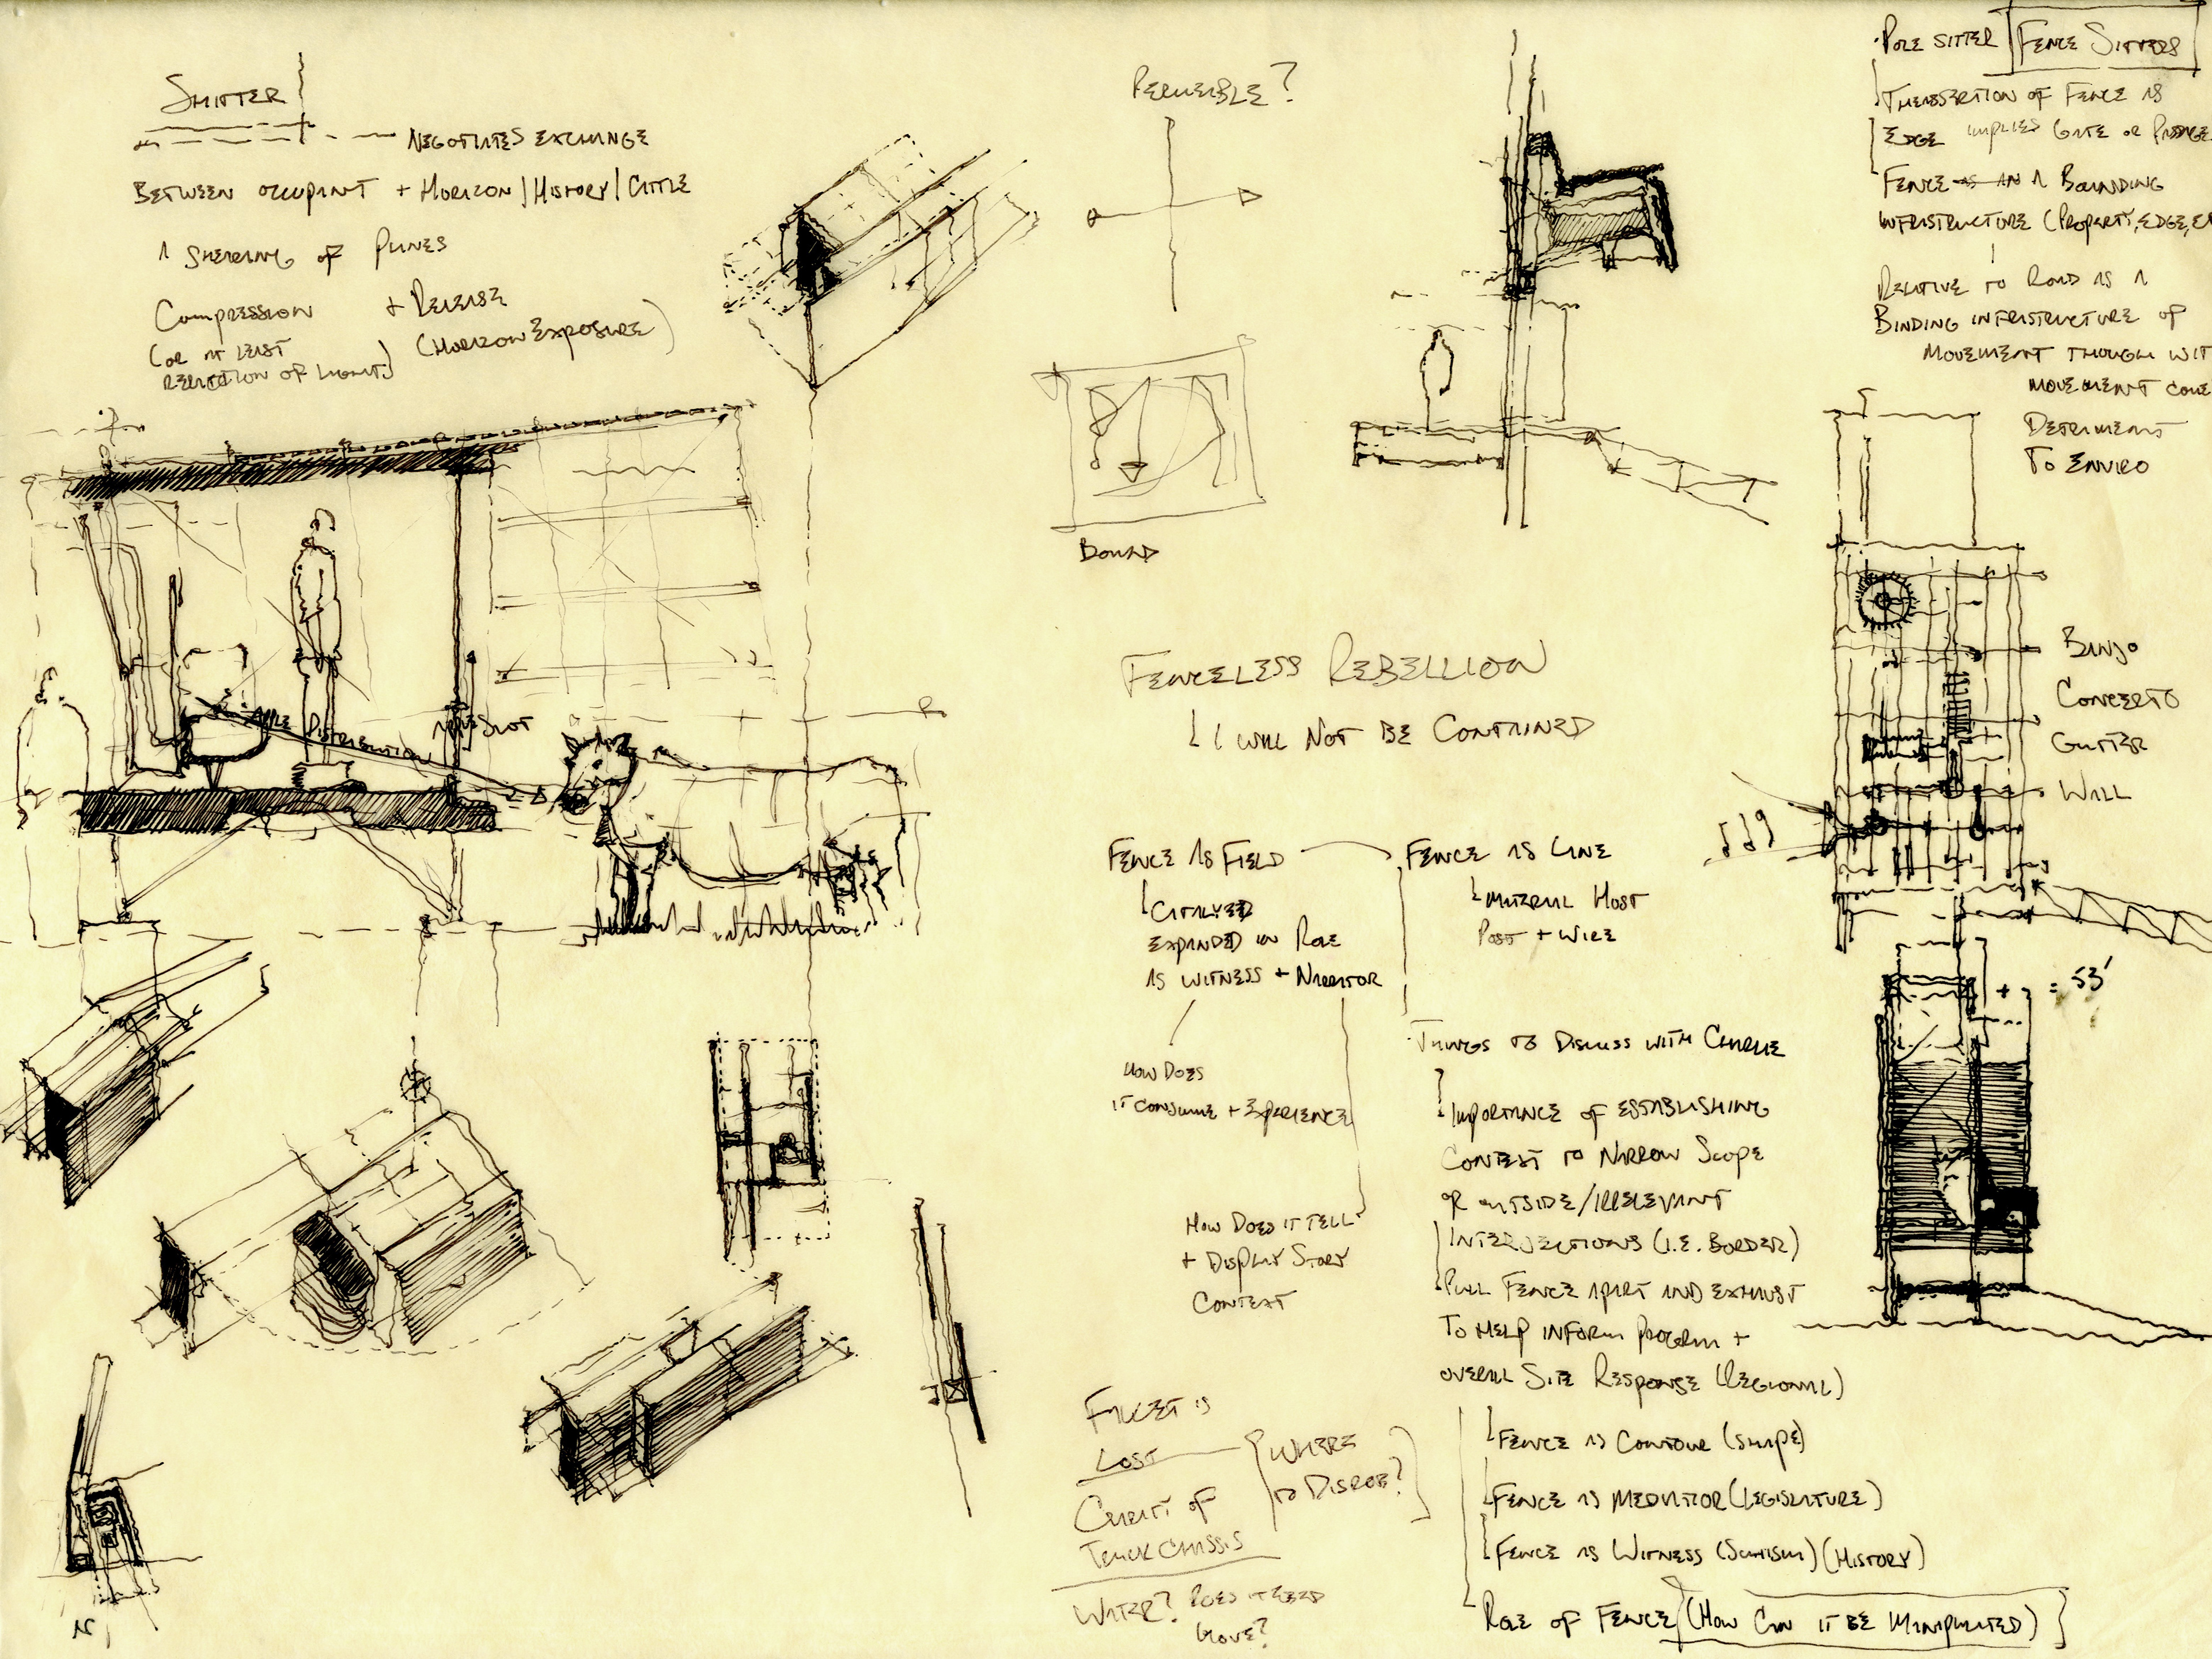 SHITTER
NEGOTIATES EXCHANGE
BETWEEN OCCUPANT + HORIZON/HISTORY/CATTLE
A SHEARING OF PLANES
COMPRESSION + RELEASE
(OR AT LEAST
OF LIGHT)
(HORIZON EXPOSURE)
APPLE DISTRIBUTION
APPLE SLOT
N
PERMEABLE?
BOUND
FENCELESS REBELLION
I WILL NOT BE CONTAINED
FENCE AS FIELD
CATALYZED
EXPANDED IN ROLE
AS WITNESS + NARRATOR
HOW DOES
IT CONSUME + EXPERIENCE
HOW DOES IT TELL
+ DISPLAY STORY
CONTEXT
FENCE AS LINE
MATERIAL HOST
POST + WIRE
THINGS TO DISCUSS WITH CHARLIE
IMPORTANCE OF ESTABLISHING
CONTEXT TO NARROW SCOPE
OF OUTSIDE/IRRELEVANT
INTERJECTIONS (I.E. BORDER)
PULL FENCE APART AND EXHAUST
TO HELP INFORM PROGRAM +
OVERALL SITE RESPONSE (REGIONAL)
FENCE AS CONTOUR (SHAPE)
FENCE AS MEDIATOR (LEGISLATURE)
FENCE AS WITNESS (HISTORY)
ROLE OF FENCE (HOW CAN IT BE MANIPULATED)
FAUCET IS
LOST
WHERE
TO DISROBE?
OF
TRUCK CHASSIS
WATER? DOES IT NEED
MOVE?
POLE SITTER FENCE SITTERS
OF FENCE AS
EDGE IMPLIES GATE OR PASSAGE
FENCE AS AN A BOUNDING
INFRASTRUCTURE (PROPERTY, EDGE,
RELATIVE TO ROAD AS A
BINDING INFRASTRUCTURE OF
MOVEMENT THOUGH WIT
MOVEMENT COME
DETRIMENT
TO ENVIRO
BANJO
CONCERTO
GUTTER
WALL
= 53'